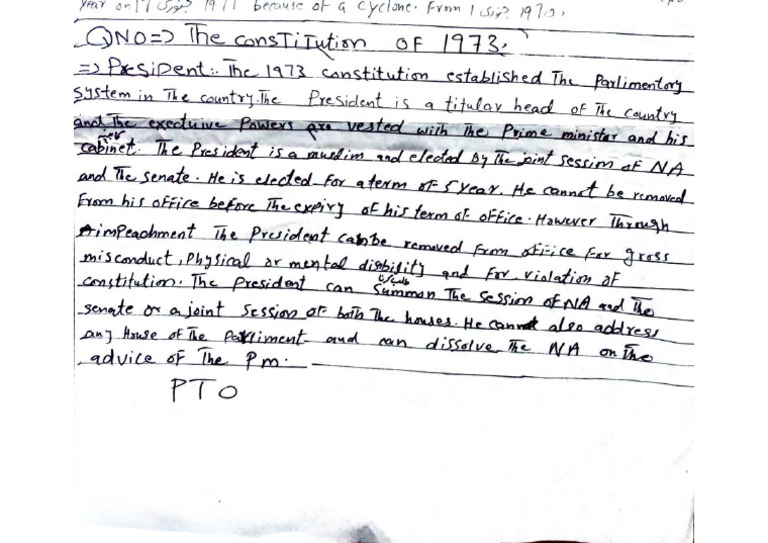 year on 1 جنوری 1971 because of a cyclone. From 1 جنوری 1970.
Q NO => The consTiTution OF 1973.
=> PresiDent:. The 1973 constitution established The Parlimentory
System in The country. The President is a titular head of The country
and The exectuive Powers are vested with The Prime ministar and his
cabinet. The President is a muslim and elected by The joint session of NA
and The senate. He is elected for a term of 5 year. He cannot be removed
From his office before The expiry of his term of office. However Through
impeachment The President can be removed From office For gross
misconduct, Physical or mental disbility and For violation of
constitution. The President can Summon The Session of NA and The
senate or a joint Session of both The houses. He cannot also address
any House of The Parliment and can dissolve The NA on The
advice of The Pm.
PTO